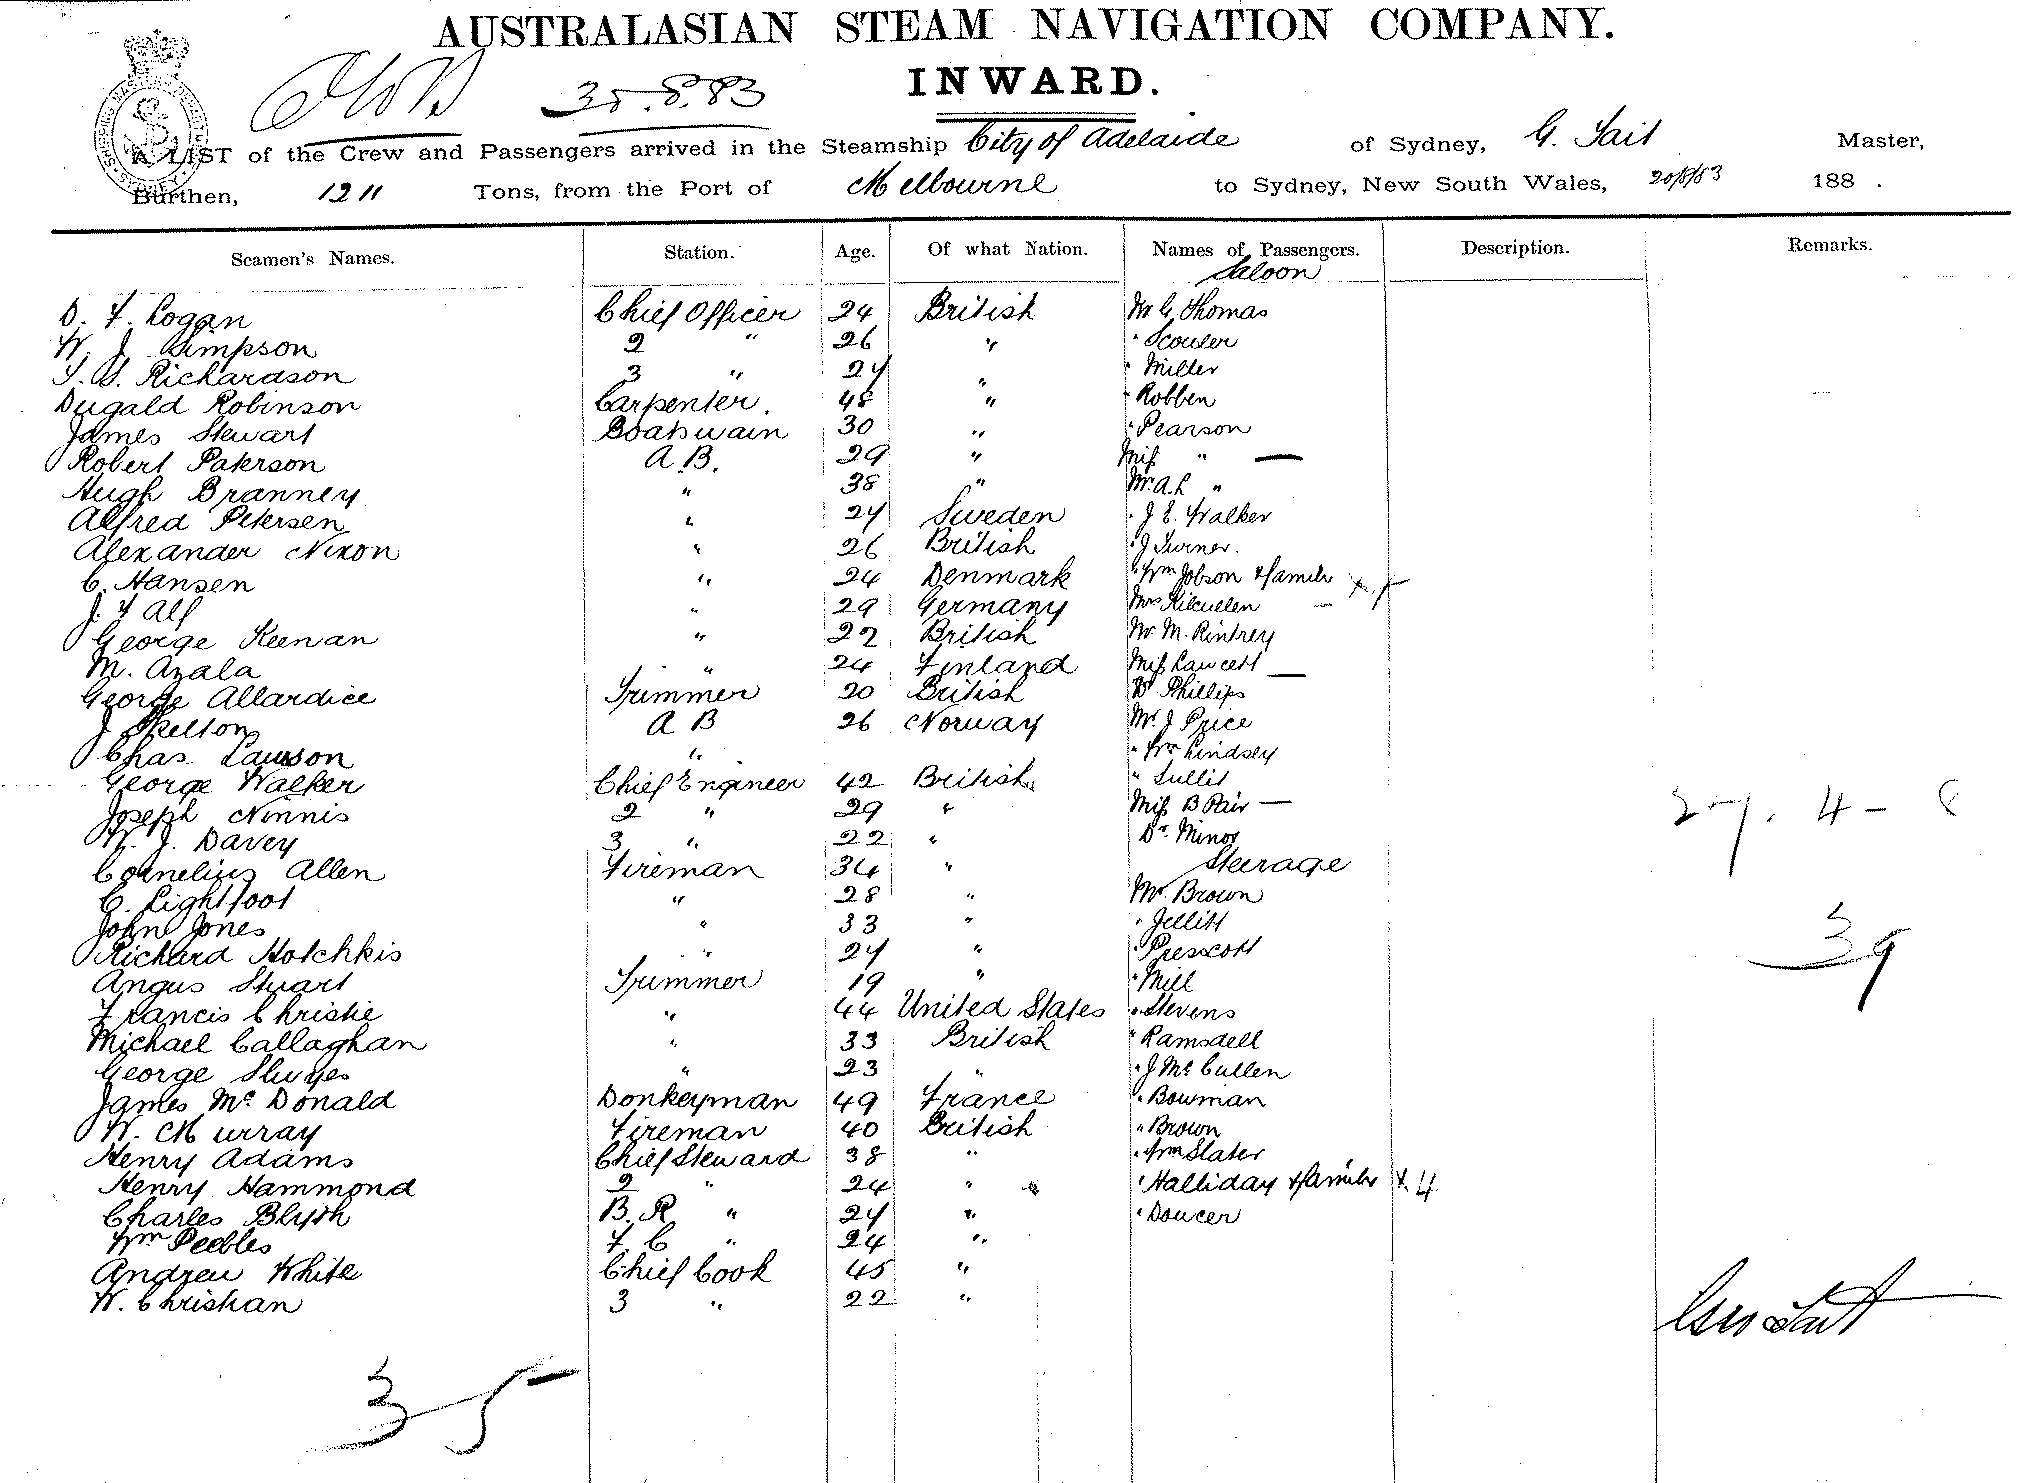 AUSTRALASIAN STEAM NAVIGATION COMPANY.
INWARD.
A LIST of the Crew and Passengers arrived in the Steamship City of Adelaide of Sydney, G. Sait Master,
Burthen, 1211 Tons, from the Port of Melbourne to Sydney, New South Wales, 20/8/83 188 .
Seamen's Names. Station. Age. Of what Nation. Names of Passengers. Description. Remarks.
Saloon
D. F. Logan Chief Officer 24 British Mr G. Thomas
W. J. Simpson 2 " 26 " " Scouler
Richardson 3 " 24 " " Miller
Dugald Robinson Carpenter. 48 " " Robben
James Stewart Boatswain 30 " " Pearson
Robert Paterson A.B. 29 " Miss " —
Hugh Branney " 38 " Mr. A. L "
Alfred Petersen " 24 Sweden " J E. Walker
Alexander Nixon " 26 British " J Turner.
C. Hansen " 24 Denmark " Wm Jobson & family
J. F Alf " 29 Germany Mrs Kilcullen —
George Keenan " 22 British Mr M. Rintrey
M. Azala " 24 Finland Miss Fawcett —
George Allardice Trimmer 20 British Dr Phillips
J Skelton A B 26 Norway Mr. J Price
Chas. Lawson " " Wm Lindsey
George Walker Chief Engineer 42 British "
Joseph Ninnis 2 " 29 " Miss B Pair —
W. J. Davey 3 " 22 " Dr. Minor
Steerage
Cornelius Allen Fireman 34 "
C. Lightfoot " 28 " Mr. Brown
John Jones " 33 " " Jellitt
Richard Hotchkis " 24 " " Prescott
Angus Stuart Trimmer 19 " " Mill
Francis Christie " 44 United States " Stevens
Michael Callaghan " 33 British " Ramsdell
George " 23 " " J McCullen
James McDonald Donkeyman 49 France " Bowman
W. Murray Fireman 40 British " Brown
Henry Adams Chief Steward 38 " " Wm Slater
Henry Hammond 2 " 24 " " Halliday & family × 4
Charles Blyth B. R " 24 " " Doucer
Wm Peebles F. C " 24 "
Andrew White Chief Cook 45 "
W. Christian 3 " 22 "
39
Geo Sait
35